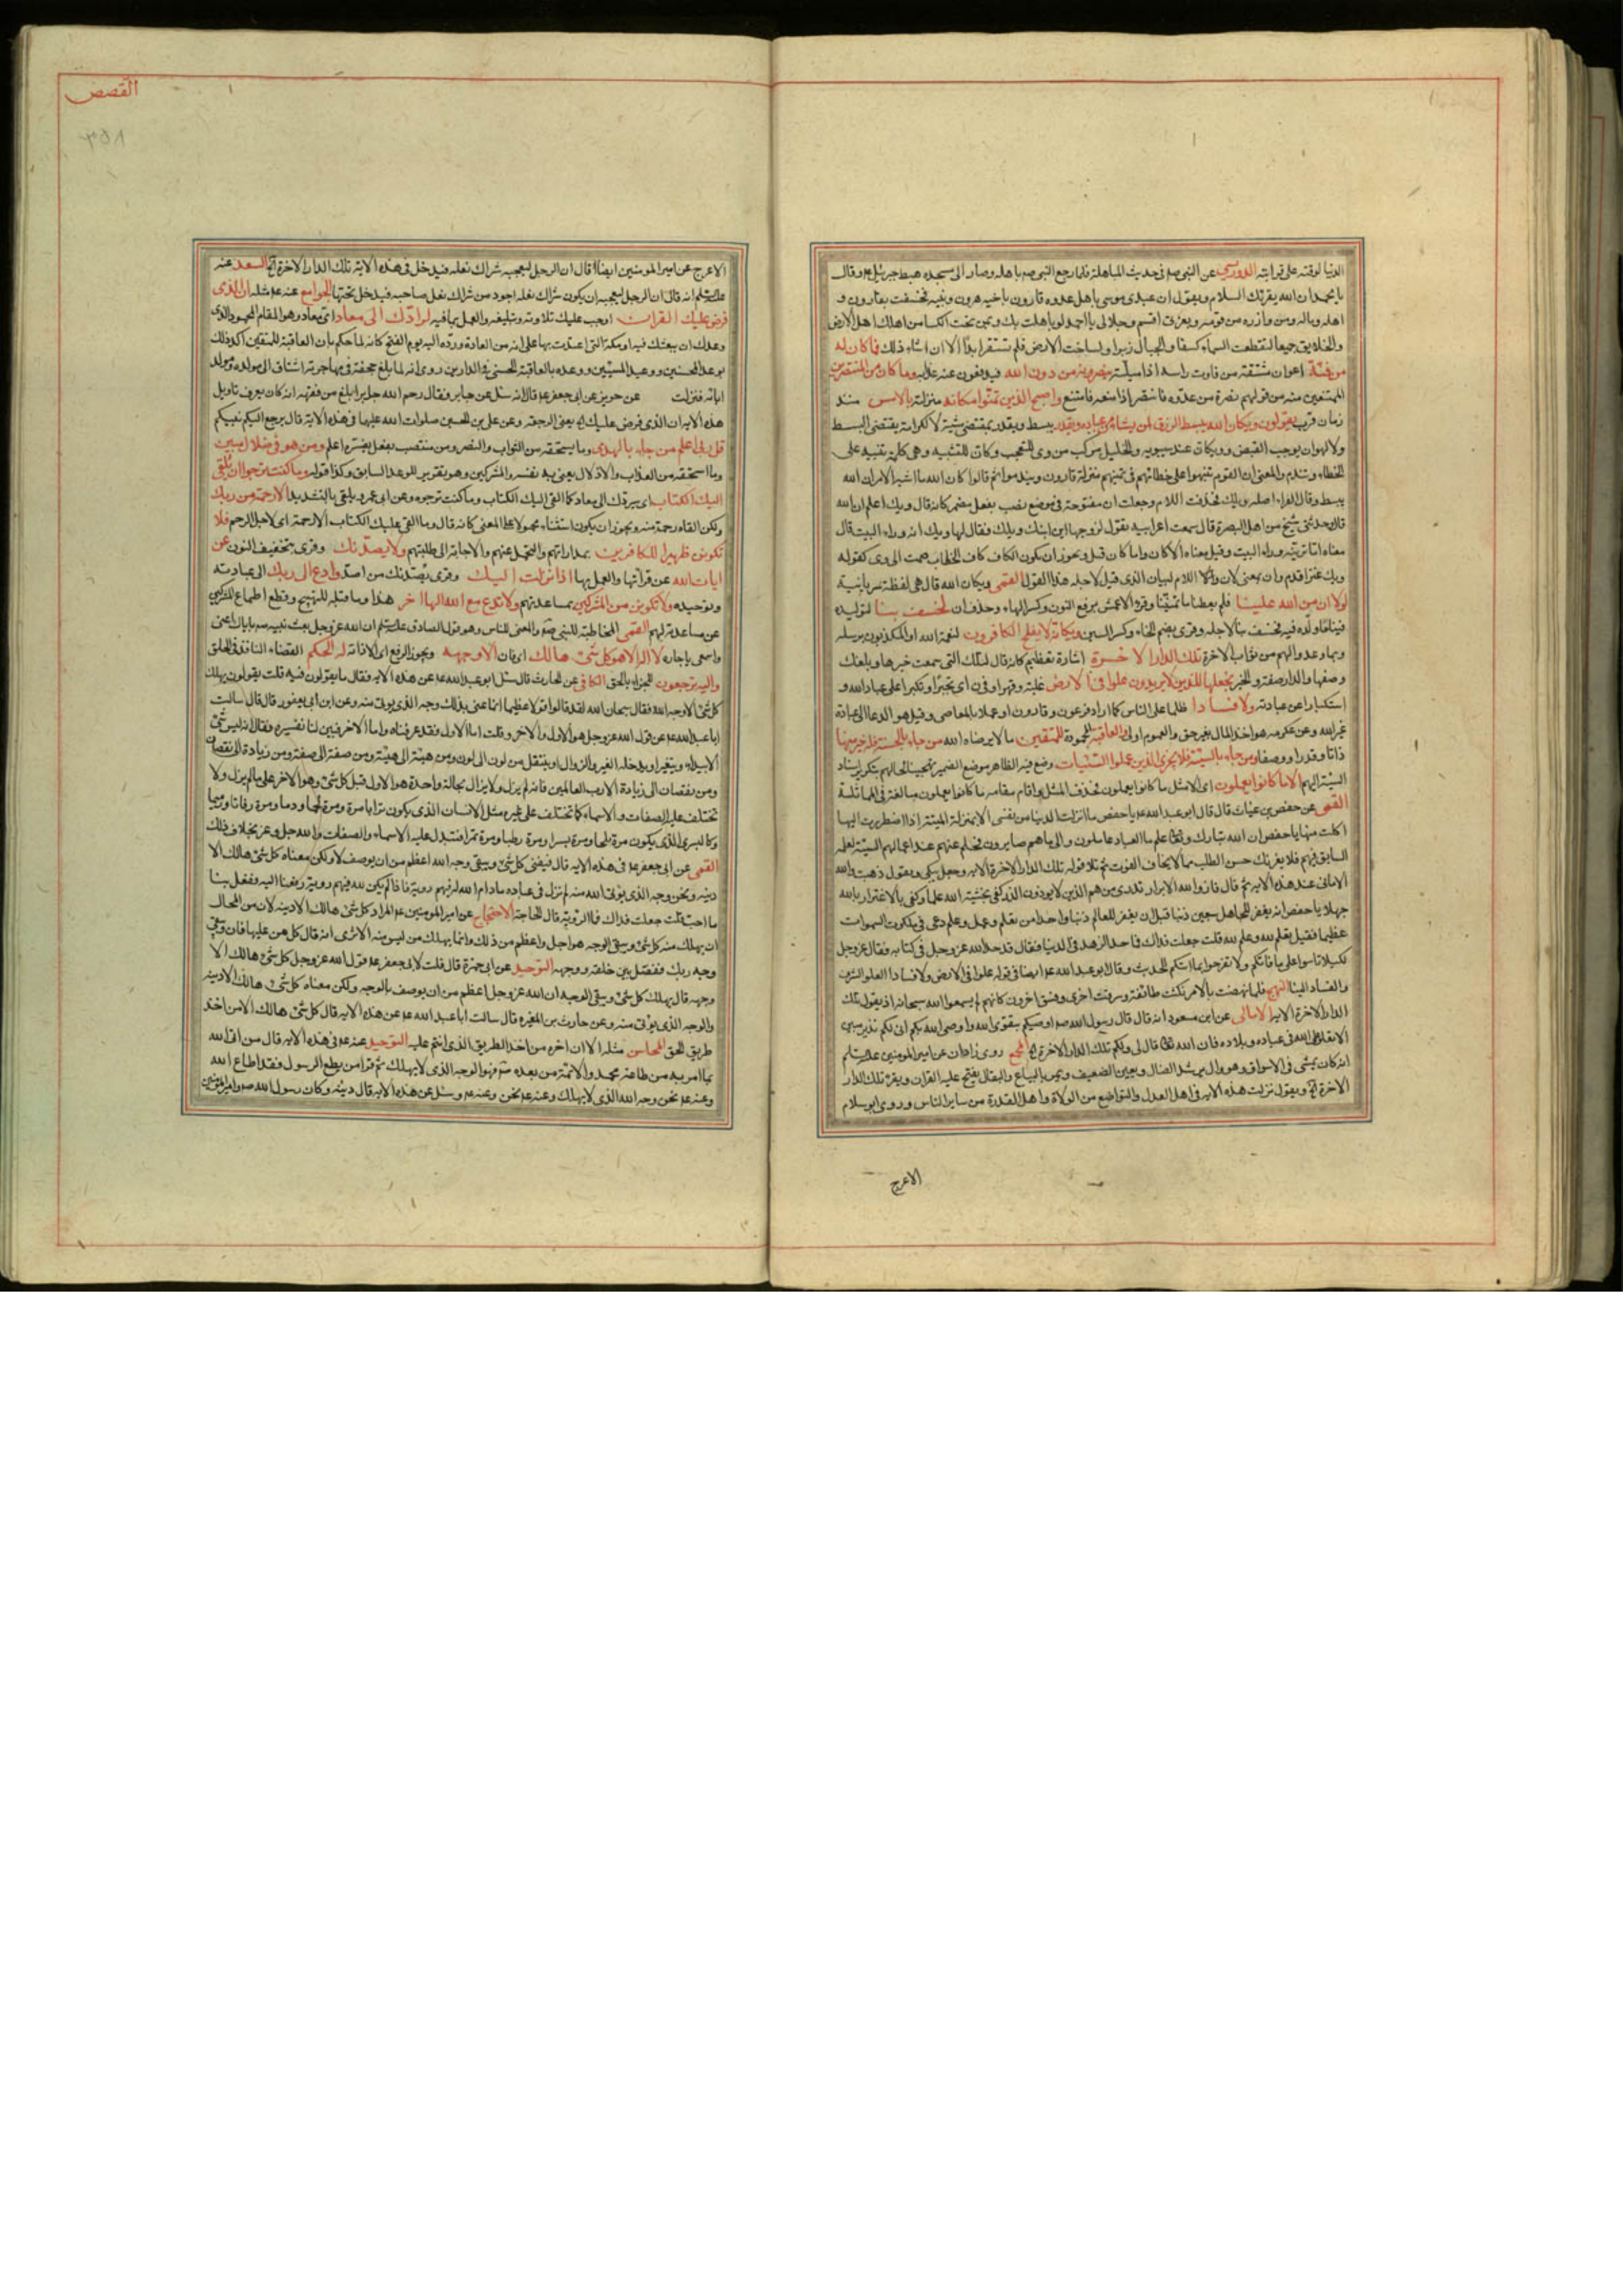 الدنيا لوقته على قرابته الدوريسى عن النبى صم فى حديث المباهلة فلما رجع النبى صم باهله وصار الى مسجده هبط جبرئيل ع وقال
يا محمد ان الله يقرئك السلام ويقول ان عبدى موسى باهل عدوه قارون باخيه هرون وبنيه فخسفت بقارون و
اهله وماله ومن وازره من قومه وبعزتى اقسم وجلالى يا احمد لو باهلت بك وبمن تحت الكسا من اهلك اهل الارض
والخلايق جميعا لتقطعت السماء كسفا والجبال زبرا ولساخت الارض فلم تستقر ابدا الا ان اشاء ذلك فما كان له
من فئة اعوان مشتقة من فاوت راسه اذا ميلته ينصرونه من دون الله فيدفعون عنه عذابه وما كان من المنتصرين
الممتنعين منه من قولهم نصره من عدوه فانتصر اذا منعه فامتنع واصبح الذين تمنوا مكانه منزلته بالامس منذ
زمان قريب يقولون ويكان الله يبسط الرزق لمن يشاء من عباده ويقدر يبسط ويقدر بمقتضى مشيته لا لكرامة يقتضى البسط
ولا لهوان يوجب القبض وويكان عند سيبويه والخليل مركب من وى للتعجب وكان للتشبيه وهى كلمة تنبيه على
الخطاء وتندم والمعنى ان القوم تنبهوا على خطائهم فى تمنيهم منزلة قارون وتندموا ثم قالوا كان الله ما اشبه الامر ان الله
يبسط وقال الفراء اصله ويلك فحذفت اللام وجعلت ان مفتوحة فى موضع نصب بفعل مضمر كانه قال ويك اعلم ان الله
قال وحدثنى شيخ من اهل البصرة قال سمعت اعرابية تقول لزوجها اين ابنك ويلك فقال لها ويك انه وراء البيت قال
معناه اما ترينه وراء البيت وقيل معناه الا كان واما كان قيل ويجوز ان يكون الكاف كاف الخطاب ضمت الى وى كقوله
ويك عنتر اقدم وان بمعنى لان واللام لبيان الذى قيل لاجله هذا القول القمى ويكان الله قال هى لفظة سريانية
لولا ان من الله علينا فلم يعطنا ما تمنينا وقرء الاعمش برفع النون وكسر الهاء وحذف ان لخسف بنا لتوليده
فينا ما ولده فيه فخسف بنا لاجله وقرى بضم الخاء وكسر السين ويكانه لا يفلح الكافرون لنعمة الله او المكذبون برسله
وبما وعدوا لهم من ثواب الاخرة تلك الدار الاخرة اشارة تعظيم كانه قال تلك التى سمعت خبرها وبلغك
وصفها والدار صفة والخبر نجعلها للذين لا يريدون علوا فى الارض غلبة وقهرا وفى اى تجبرا وتكبرا على عباد الله و
استكبارا عن عبادته ولا فسادا ظلما على الناس كما اراد فرعون وقارون او عملا بالمعاصى وقيل هو الدعا الى عبادة
غير الله وعن عكرمه هو اخذ المال بغير حق والعموم اولى والعاقبة المحمودة للمتقين ما لا يرضاه الله من جاء بالحسنة فله خير منها
ذاتا وقدرا ووصفا ومن جاء بالسيئة فلا يجزى الذين عملوا السيئات وضع فيه الظاهر موضع الضمير تهجينا لحالهم بتكرير اسناد
السيئة اليهم الا ما كانوا يعملون اى الا مثل ما كانوا يعملون فحذف المثل واقام مقامه ما كانوا يعملون مبالغة فى المماثلة
القمى عن حفص بن غياث قال قال ابو عبد الله ع يا حفص ما انزلت الدنيا من نفسى الا بمنزلة الميتة اذا اضطررت اليها
اكلت منها يا حفص ان الله تبارك وتعا علم ما العباد عاملون والى ما هم صايرون فحلم عنهم عند اعمالهم السيئة لعلمه
السابق فيهم فلا يغرنك حسن الطلب ممن لا يخاف الفوت ثم تلا قوله تلك الدار الاخرة الاية وجعل يبكى ويقول ذهبت والله
الامانى عند هذه الاية ثم قال فاز والله الابرار تدرى من هم الذين لا يوذون الذر كفى بخشية الله علما وكفى بالاغترار بالله
جهلا يا حفص انه يغفر للجاهل سبعين ذنبا قبل ان يغفر للعالم ذنبا واحدا من تعلم وعمل وعلم دعى فى ملكوت السموات
عظيما فقيل تعلم لله وعلم لله قلت جعلت فداك فما حد الزهد فى الدنيا فقال قد حد الله عز وجل فى كتابه فقال عز وجل
لكيلا تاسوا على ما فاتكم ولا تفرحوا بما اتاكم الحديث وقال ابو عبد الله ع ايضا فى قوله علوا فى الارض ولا فسادا العلو الشرف
والفساد البنا النهج فلما نهضت بالامر نكثت طائفة ومرقت اخرى وفسق اخرون كانهم لم يسمعوا الله سبحانه اذ يقول تلك
الدار الاخرة الاية الامالى عن ابن مسعود انه قال قال رسول الله صم اوصيكم بتقوى الله واوصى الله بكم انى لكم نذير مبين
الا تعلوا على الله فى عباده وبلاده فان الله تعا قال لى ولكم تلك الدار الاخرة الخ المجمع روى زاذان عن امير المومنين عليه السلم
انه كان يمشى فى الاسواق وهو وال يرشد الضال ويعين الضعيف ويمر بالبياع والبقال يفتح عليه القران ويقرء تلك الدار
الاخرة الخ ويقول نزلت هذه الاية فى اهل العدل والتواضع من الولاة واهل القدرة من ساير الناس وروى ابو سلام
الاعرج
القصص
الاعرج عن امير المومنين ايضا قال ان الرجل ليعجبه شراك نعله فيدخل فى هذه الاية تلك الدار الاخرة الخ السعد عنه
عليه السلم انه قال ان الرجل ليعجبه ان يكون شراك نعله اجود من شراك نعل صاحبه فيدخل تحتها الجوامع عنه ع مثله ان الذى
فرض عليك القران اوجب عليك تلاوته وتبليغه والعمل بما فيه لرادك الى معاد اى معاد وهو المقام المحمود الذى
وعدك ان يبعثك فيه او مكة التى اعتدت بها على انه من العادة ورده اليه يوم الفتح كانه لما حكم بان العاقبة للمتقين اكد ذلك
بوعد المحسنين ووعيد المسيئين ووعده بالعاقبة الحسنى فى الدارين روى انه لما بلغ جحفة فى مهاجرته اشتاق الى مولده ومولد
ابائه فنزلت عن حريز عن ابى جعفر ع قال انه سئل عن جابر فقال رحم الله جابرا بلغ من فقهه انه كان يعرف تاويل
هذه الاية ان الذى فرض عليك الخ يعنى الرجعة وعن على بن الحسين صلوات الله عليهما فى هذه الاية قال يرجع اليكم نبيكم
قل ربى اعلم من جاء بالهدى وما يستحقه من الثواب والنصر ومن منتصب بفعل يفسره اعلم ومن هو فى ضلال مبين
وما استحقه من العذاب والاذلال يعنى به نفسه والمشركين وهو تقرير للوعد السابق وكذا قوله وما كنت ترجو ان يلقى
اليك الكتاب اى سيردك الى معاد كما القى اليك الكتاب وما كنت ترجوه وعن ابى عمرو يلقى بالتشديد الا رحمة من ربك
ولكن القاه رحمة منه ويجوز ان يكون استثناء محمولا على المعنى كانه قال وما القى عليك الكتاب الا رحمة اى لاجل الرحم فلا
تكونن ظهيرا للكافرين بمداراتهم والتحمل عنهم والاجابة الى طلبتهم ولا يصدنك وقرى بتخفيف النون عن
ايات الله عن قرائتها والعمل بها اذ انزلت اليك وقرى يصدنك من اصد وادع الى ربك الى عبادته
وتوحيده ولا تكونن من المشركين بمساعدتهم ولا تدع مع الله الها اخر هذا وما قبله للتهييج وقطع اطماع المشركين
عن مساعدته لهم القمى المخاطبة للنبى صم والمعنى للناس وهو قول الصادق عليه السلم ان الله عز وجل بعث نبيه صم باياك اعنى
واسمعى يا جاره لا اله الا هو كل شئ هالك اى فان الا وجهه ويجوز الرفع اى الا ذاته له الحكم القضاء النافذ فى الخلق
واليه ترجعون للجزاء بالحق الكافى عن الحارث قال سئل ابو عبد الله ع عن هذه الاية فقال ما يقولون فيه قلت يقولون يهلك
كل شئ الا وجه الله فقال سبحان الله لقد قالوا قولا عظيما انما عنى بذلك وجه الذى يوتى منه وعن ابن ابى يعفور قال قال سالت
ابا عبد الله ع عن قول الله عز وجل هو الاول والاخر وقلت اما الاول فقد عرفناه واما الاخر فبين لنا تفسيره فقال انه ليس شئ
الا يبيد او يتغير او يدخله الغير والزوال او ينتقل من لون الى لون ومن هيئة الى هيئة ومن صفة الى صفة ومن زيادة الى نقصان
ومن نقصان الى زيادة الا رب العالمين فانه لم يزل ولا يزال بحالة واحدة هو الاول قبل كل شئ وهو الاخر على ما لم يزل ولا
تختلف عليه الصفات والاسماء كما تختلف على غيره مثل الانسان الذى يكون ترابا مرة ومرة لحما ودما ومرة رفاتا ورميما
وكالبسر الذى يكون مرة بلحا ومرة بسرا ومرة رطبا ومرة تمرا فتتبدل عليه الاسماء والصفات والله جل وعز بخلاف ذلك
القمى عن ابى جعفر ع فى هذه الاية قال فيفنى كل شئ ويبقى وجه الله اعظم من ان يوصف لا ولكن معناه كل شئ هالك الا
دينه ونحن وجه الذى يوتى الله منه لم نزل فى عباده مادام الله له فيهم روية فاذا لم يكن لله فيهم روية رفعنا اليه وفعل بنا
ما احب قلت جعلت فداك فما الروية قال الحاجة الاحتجاج عن امير المومنين ع المراد كل شئ هالك الا دينه لان من المحال
ان يهلك منه كل شئ ويبقى الوجه هو اجل واعظم من ذلك وانما يهلك من ليس منه الا ترى انه قال كل من عليها فان ويبقى
وجه ربك ففصل بين خلقه ووجهه التوحيد عن ابى حمزة قال قلت لابى جعفر ع قول الله عز وجل كل شئ هالك الا
وجهه قال يهلك كل شئ ويبقى الوجه ان الله عز وجل اعظم من ان يوصف بالوجه ولكن معناه كل شئ هالك الا دينه
والوجه الذى يوتى منه وعن حارث بن المغيرة قال سالت ابا عبد الله ع عن هذه الاية قال كل شئ هالك الا من اخذ
طريق الحق المحاسن مثله الا ان اخره من اخذ الطريق الذى انتم عليه التوحيد عنه ع فى هذه الاية قال من اتى الله
بما امر به من طاعة محمد والائمة من بعده صم فهو الوجه الذى لا يهلك ثم قرا من يطع الرسول فقد اطاع الله
وعنه ع نحن وجه الله الذى لا يهلك وعنه ع نحن وعنه ع وسئل عن هذه الاية قال دينه وكان رسول الله صم وامير المومنين